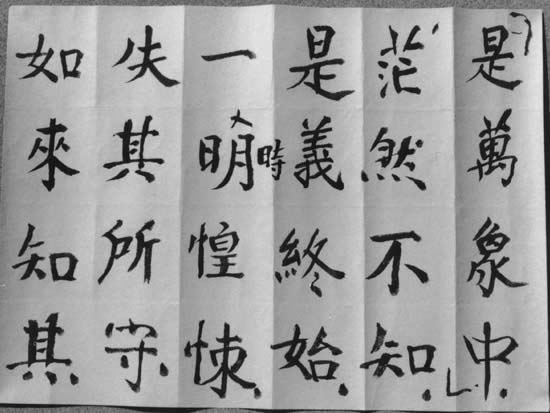 是萬象中
茫然不知
是義終始
一明時惶悚
失其所守
如來知其